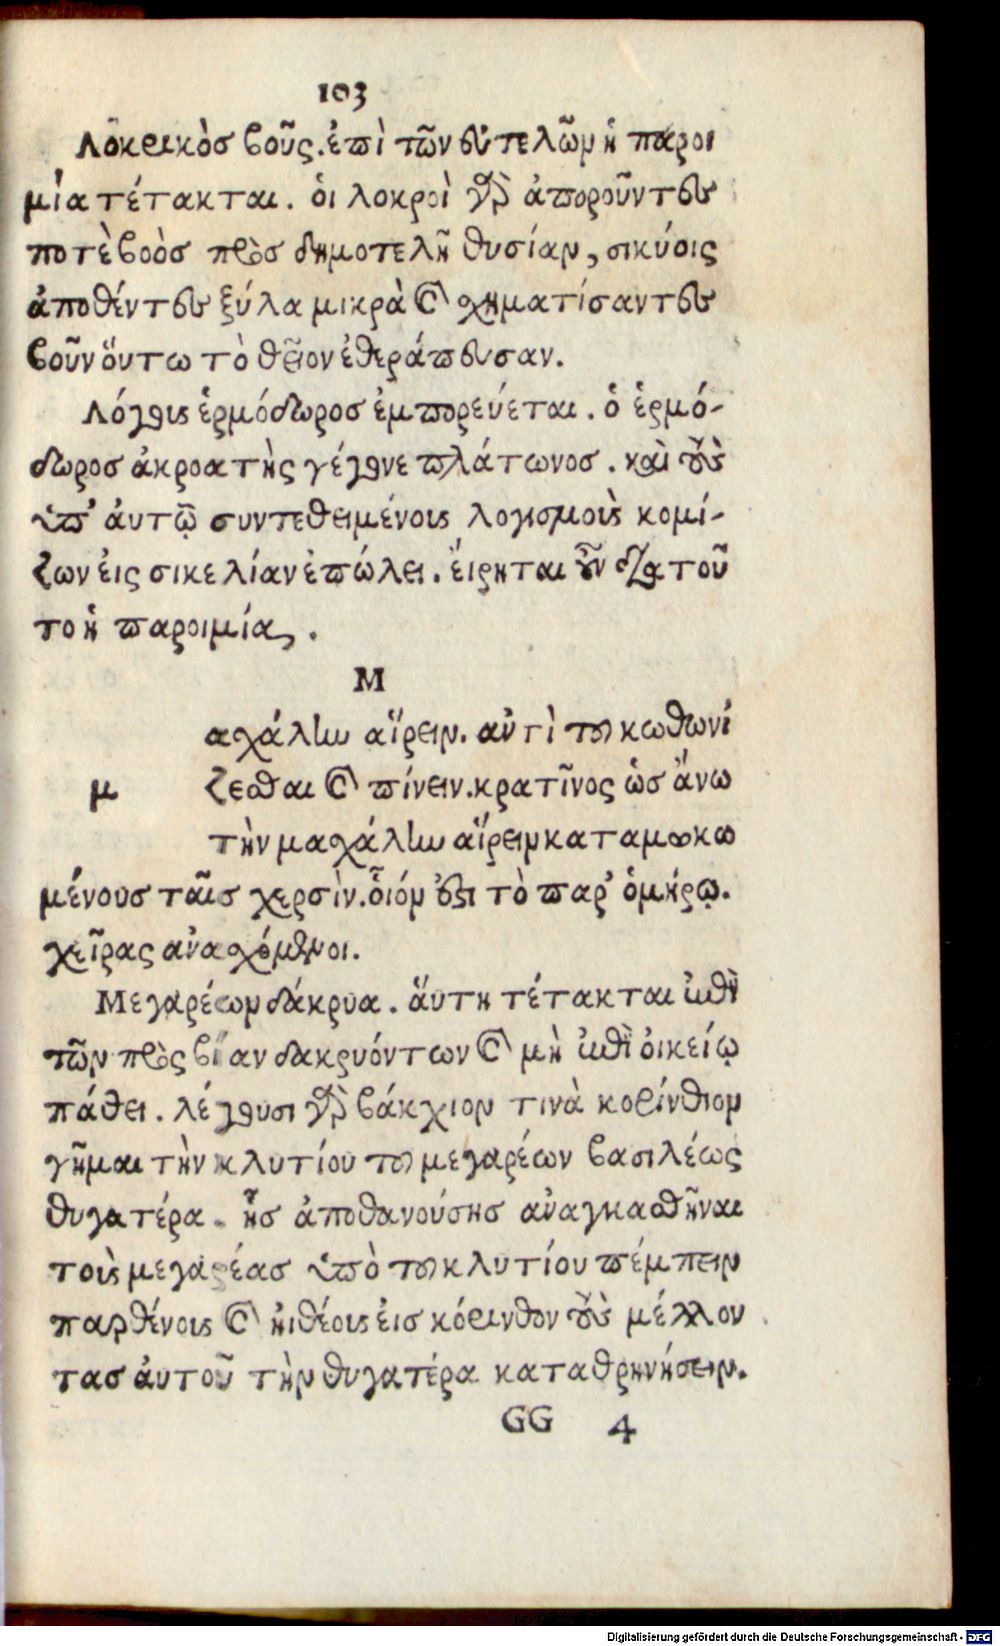 103
Λοκρικὸσ βοῦς. ἐπὶ τῶν εὐτελῶν ἡ παροι
μία τέτακται. ὁι λοκροὶ γὰρ ἀποροῦντες
ποτὲ βοὸσ πρὸσ δημοτελῆ θυσίαν, σικύοις
ἀποθέντες ξύλα μικρὰ καὶ σχηματίσαντες
βοῦν ὅυτω τὸ θεῖον ἐθεράπευσαν.
Λόγοις ἑρμόδωροσ ἐμπορεύεται. ὁ ἑρμό-
δωροσ ἀκροατὴς γέγονε πλάτωνοσ. καὶ τοὺς
ὑπ' ἀυτῷ συντεθειμένους λογισμοὺς κομί-
ζων ἐις σικελίαν ἐπώλει. ἔιρηται οὖν διὰ τοῦ
το ἡ παροιμία.
Μ
αχάλην αἴρειν. ἀντὶ τοῦ κωθωνί
μ ζεσθαι καὶ πίνειν. κρατῖνος ὡσ ἄνω
τὴν μαχάλην αἴρειν καταμωκω
μένουσ ταῖσ χερσὶν. οἷόν ἐστι τὸ παρ' ὁμήρῳ.
χεῖρας ἀνασχόμενοι.
Μεγαρέων δάκρυα. ἅυτη τέτακται ἐπὶ
τῶν πρὸς βίαν δακρυόντων καὶ μὴ ἐπὶ ὀικείῳ
πάθει. λέγουσι γὰρ βάκχιον τινὰ κορίνθιον
γῆμαι τὴν κλυτίου τοῦ μεγαρέων βασιλέως
θυγατέρα. ἧσ ἀποθανούσησ ἀναγκασθῆναι
τοὺς μεγαρέασ ὑπὸ τοῦ κλυτίου πέμπειν
παρθένους καὶ ἠιθέους ἐισ κόρινθον τοὺς μέλλον
τασ ἀυτοῦ τὴν θυγατέρα καταθρηνήσειν.
GG 4
Digitalisierung gefördert durch die Deutsche Forschungsgemeinschaft - DFG